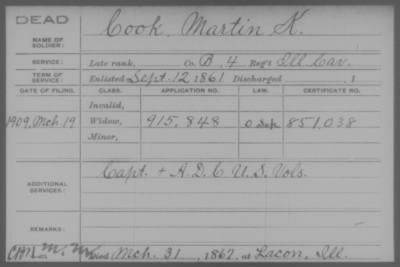 DEAD
NAME OF SOLDIER: Cook, Martin K.
SERVICE: Late rank, Co. B, 4 Reg't Ill Cav.
TERM OF SERVICE: Enlisted Sept. 12 1861 Discharged , 1
DATE OF FILING. CLASS. APPLICATION NO. LAW. CERTIFICATE NO.
Invalid,
1909, Mch. 19 Widow, 915,848 851,038
Minor,
ADDITIONAL SERVICES: Capt. + A.D.C U.S. Vols.
REMARKS:
Died Mch. 31, 1867, at Lacon, Ill.